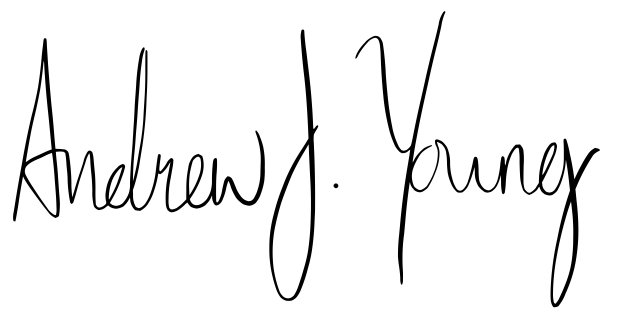 Andrew J. Young